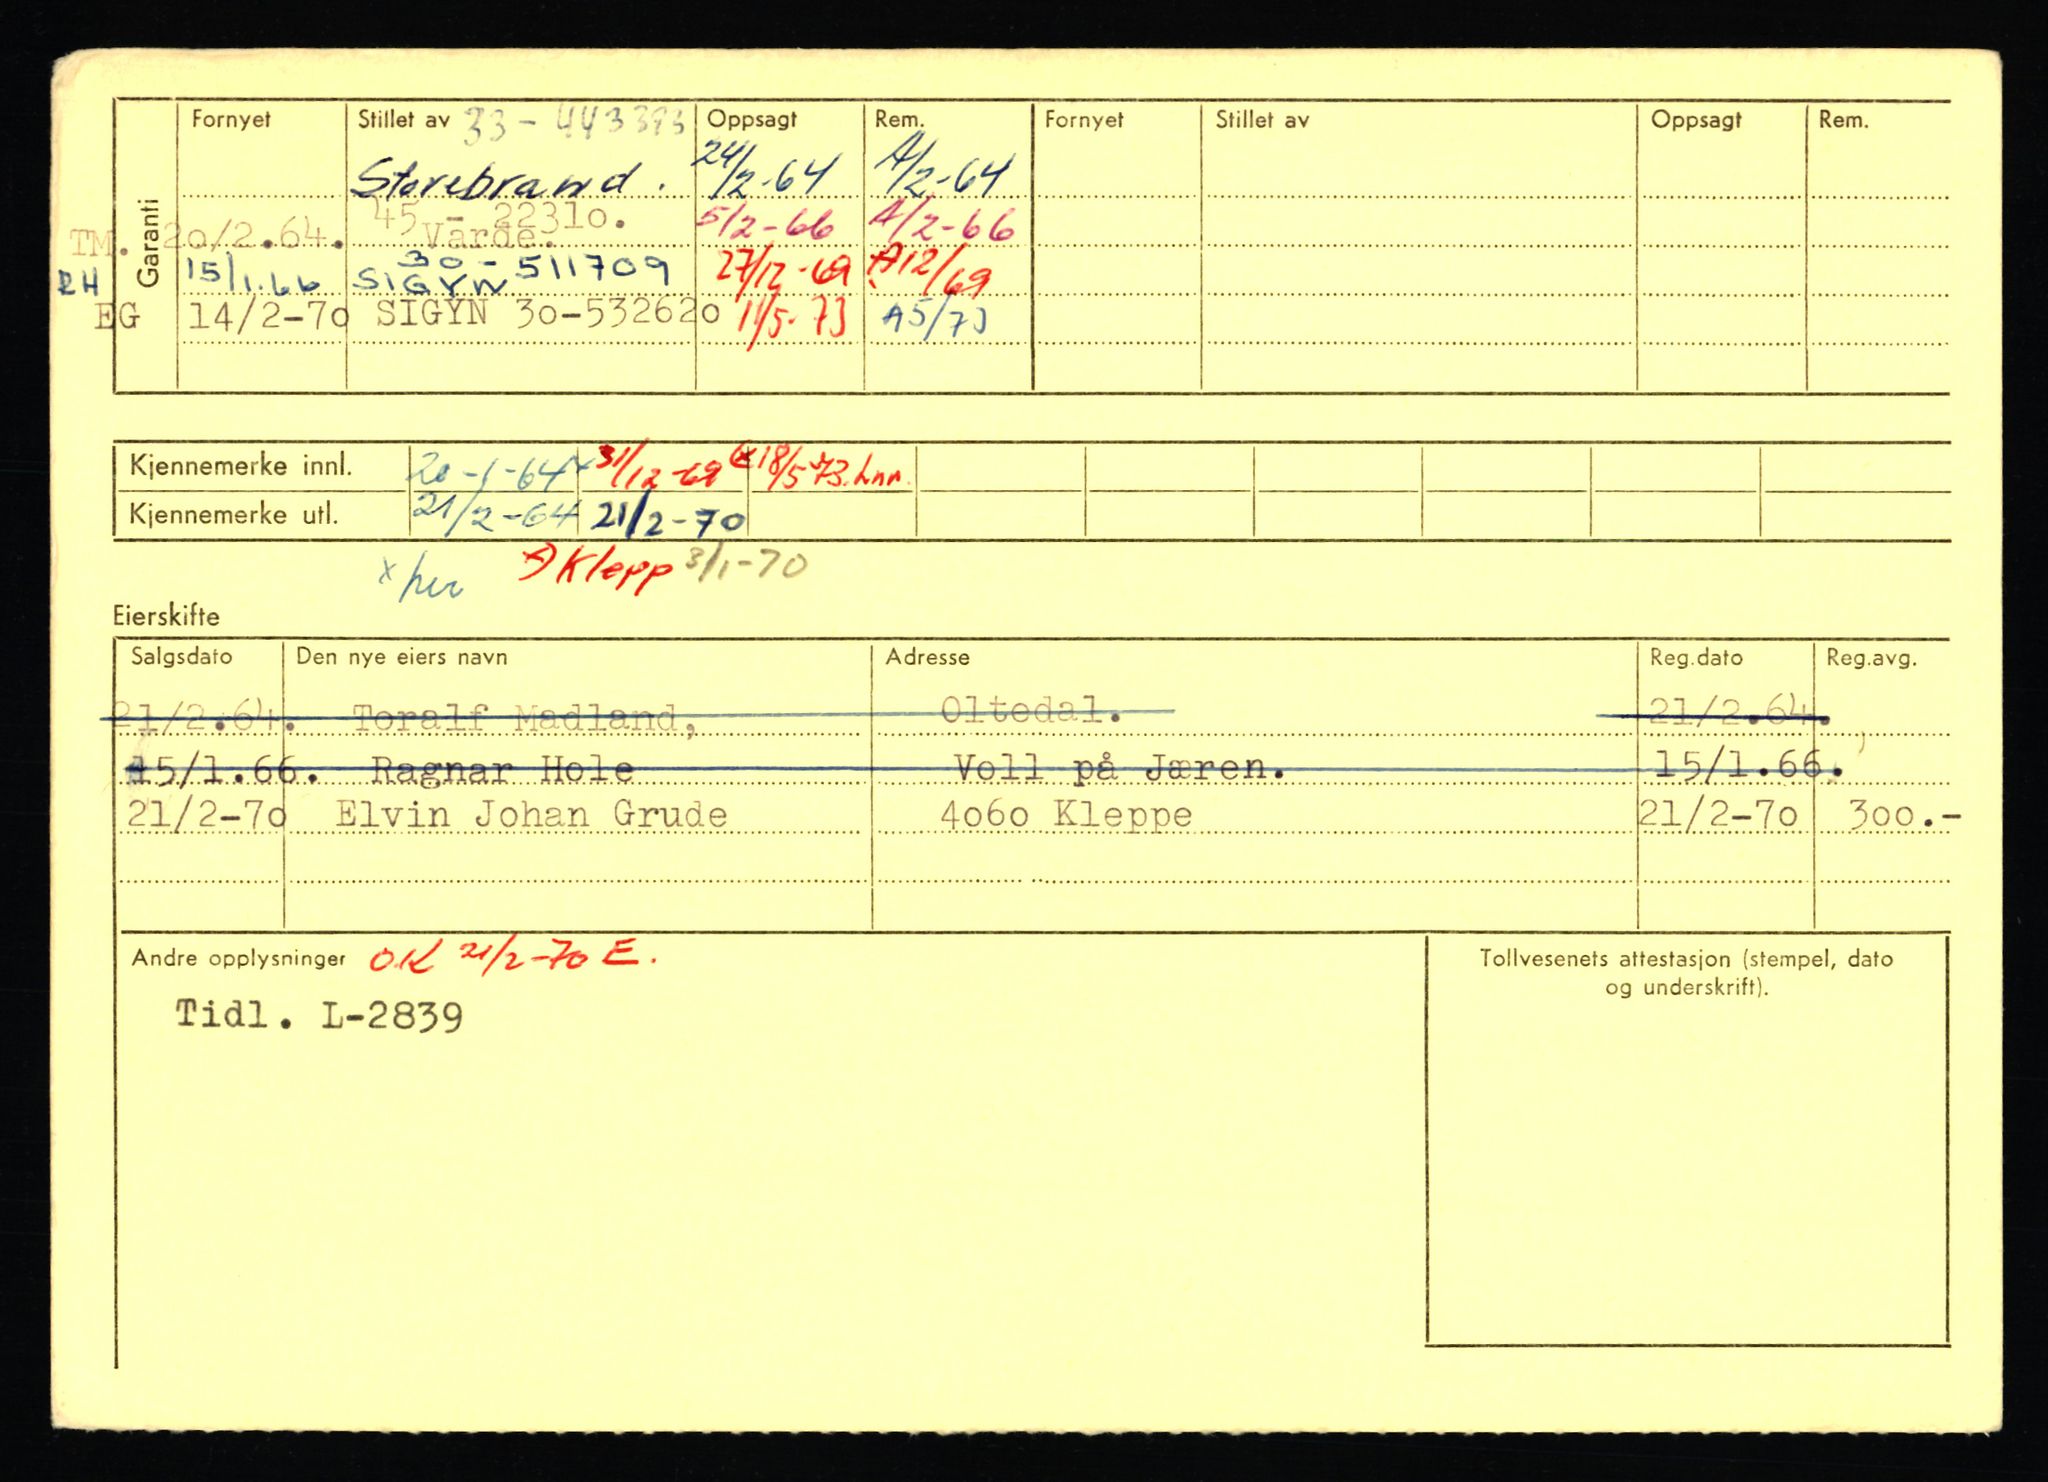 Fornyet Stillet av 33-443393 Oppsagt Rem. Fornyet Stillet av Oppsagt Rem.
Garanti
Storebrand. 24/2-64 A/2-64
TM. 20/2.64. 45 - 22310. Varde. 5/2-66 A/2-66
RH 15/1.66 30-511709 SIGYN 27/12-69 A12/69
EG 14/2-70 SIGYN 30-532620 11/5-73 A5/73
Kjennemerke innl. 20-1-64 x 31/12-69 18/5-73.
Kjennemerke utl. 21/2-64 21/2-70
x her A) Klepp 3/1-70
Eierskifte
Salgsdato Den nye eiers navn Adresse Reg.dato Reg.avg.
21/2.64. Toralf Madland, Oltedal. 21/2.64.
15/1.66. Ragnar Hole Voll på Jæren. 15/1.66.
21/2-70 Elvin Johan Grude 4060 Kleppe 21/2-70 300.-
Andre opplysninger O.K 21/2-70 E.
Tidl. L-2839
Tollvesenets attestasjon (stempel, dato
og underskrift).